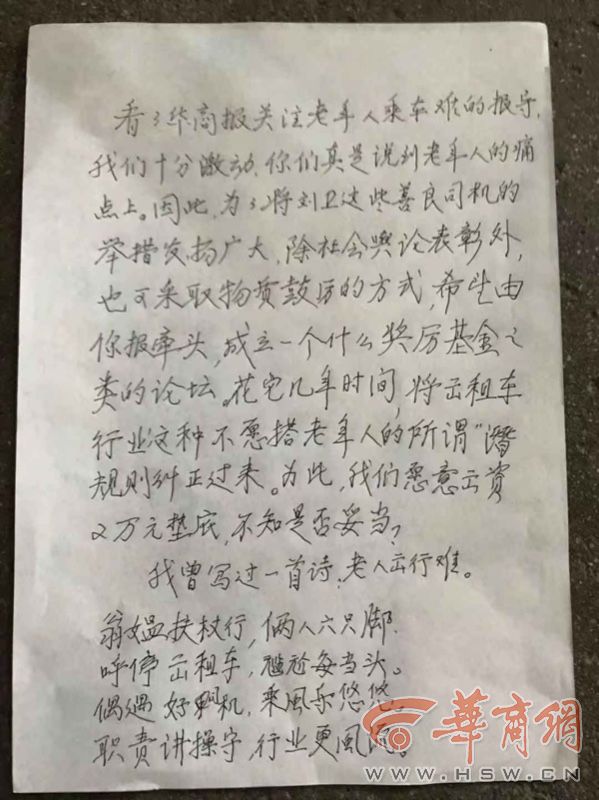 看了华商报关注老年人乘车难的报导,
我们十分激动,你们真是说到老年人的痛
点上。因此,为了将刘卫这些善良司机的
举措发扬广大,除社会舆论表彰外,
也可采取物质鼓历的方式,希望由
你报牵头,成立一个什么奖历基金之
类的论坛。花它几年时间,将出租车
行业这种不愿搭老年人的所谓“潜
规则纠正过来。为此,我们愿意出资
2万元垫底,不知是否妥当?
我曾写过一首诗,老人出行难。
翁媪扶杖行,俩人六只脚.
呼停出租车,尴尬每当头。
偶遇好司机,乘風乐悠悠。
职责讲操守,行业更風
華商網
WWW.HSW.CN